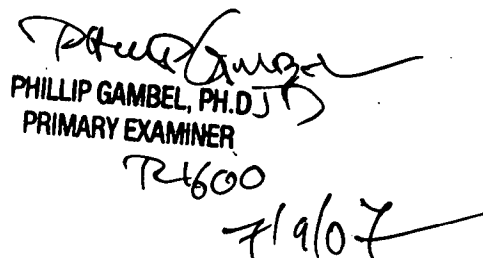 Phillip Gambel
PHILLIP GAMBEL, PH.D JD
PRIMARY EXAMINER
TC1600
7/9/07